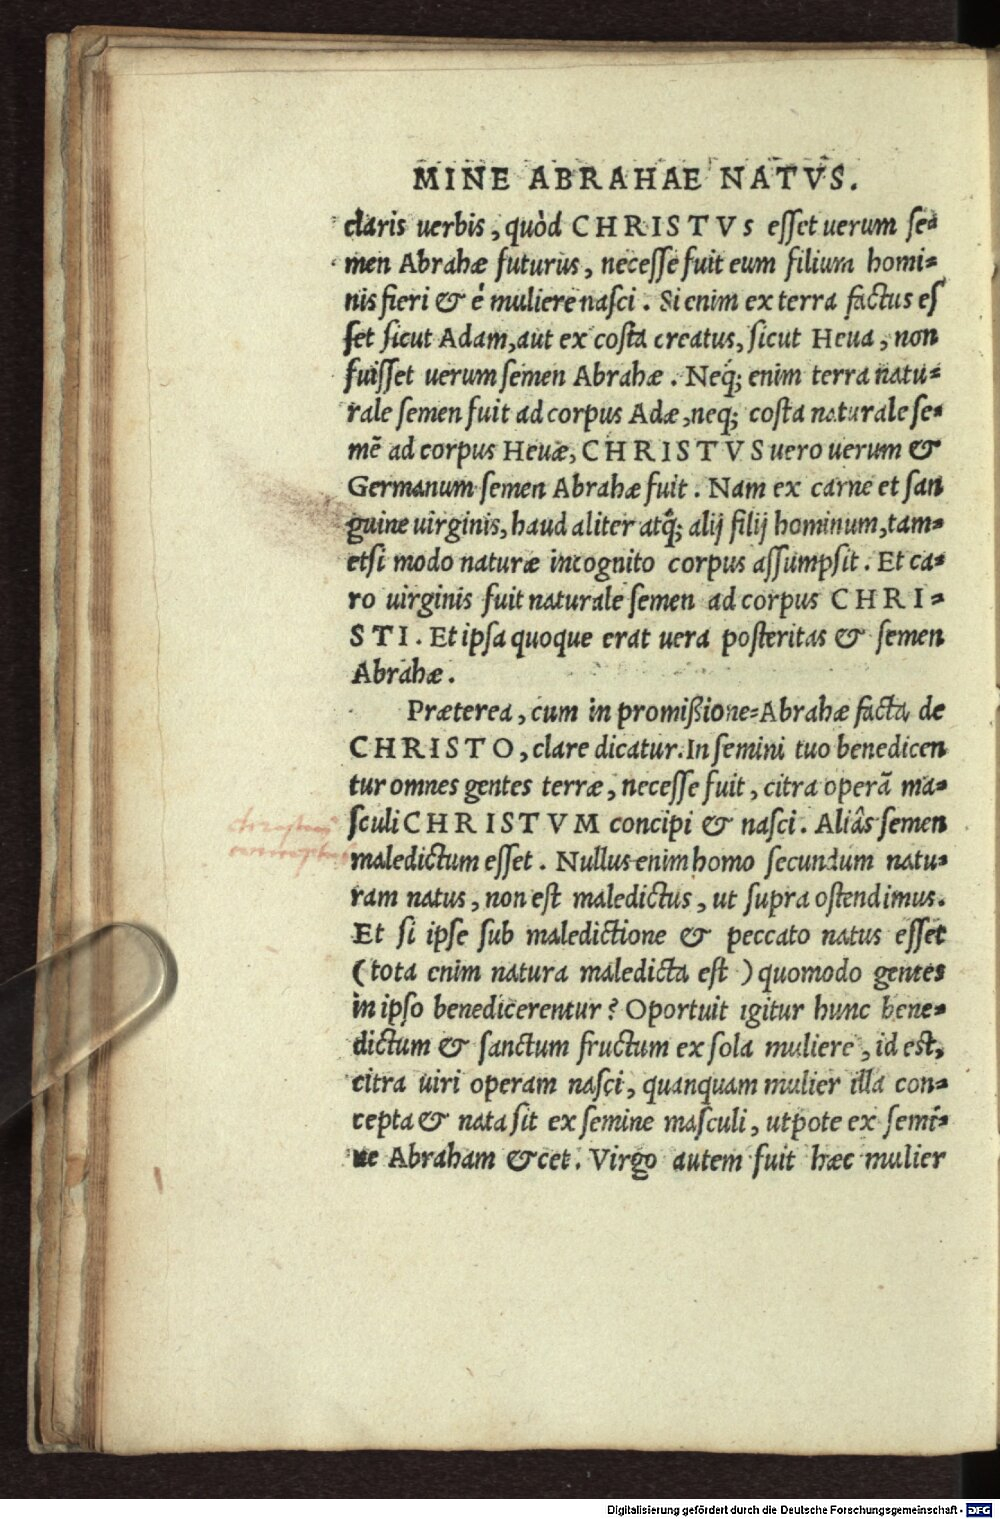 MINE ABRAHAE NATVS.
claris uerbis, quòd CHRISTVs esset uerum se=
men Abrahæ futurus, necesse fuit eum filium homi=
nis fieri & è muliere nasci. Si enim ex terra factus es
set sicut Adam, aut ex costa creatus, sicut Heua, non
fuisset uerum semen Abrahæ. Neq; enim terra natu=
rale semen fuit ad corpus Adæ, neq; costa naturale se=
mē ad corpus Heuæ, CHRISTVS uero uerum &
Germanum semen Abrahæ fuit. Nam ex carne et san
guine uirginis, haud aliter atq̃; alij filij hominum, tam=
etsi modo naturæ incognito corpus assumpsit. Et ca=
ro uirginis fuit naturale semen ad corpus CHRI=
STI. Et ipsa quoque erat uera posteritas & semen
Abrahæ.
Præterea, cum in promißione=Abrahæ facta de
CHRISTO, clare dicatur. In semini tuo benedicen
tur omnes gentes terræ, necesse fuit, citra operā ma=
sculi CHRISTVM concipi & nasci. Aliâs semen
maledictum esset. Nullus enim homo secundum natu=
ram natus, non est maledictus, ut supra ostendimus.
Et si ipse sub maledictione & peccato natus esset
(tota enim natura maledicta est) quomodo gentes
in ipso benedicerentur? Oportuit igitur hunc bene=
dictum & sanctum fructum ex sola muliere, id est,
citra uiri operam nasci, quanquam mulier illa con=
cepta & nata sit ex semine masculi, utpote ex semi=
ne Abraham & cet. Virgo autem fuit hæc mulier
Digitalisierung gefördert durch die Deutsche Forschungsgemeinschaft - DFG